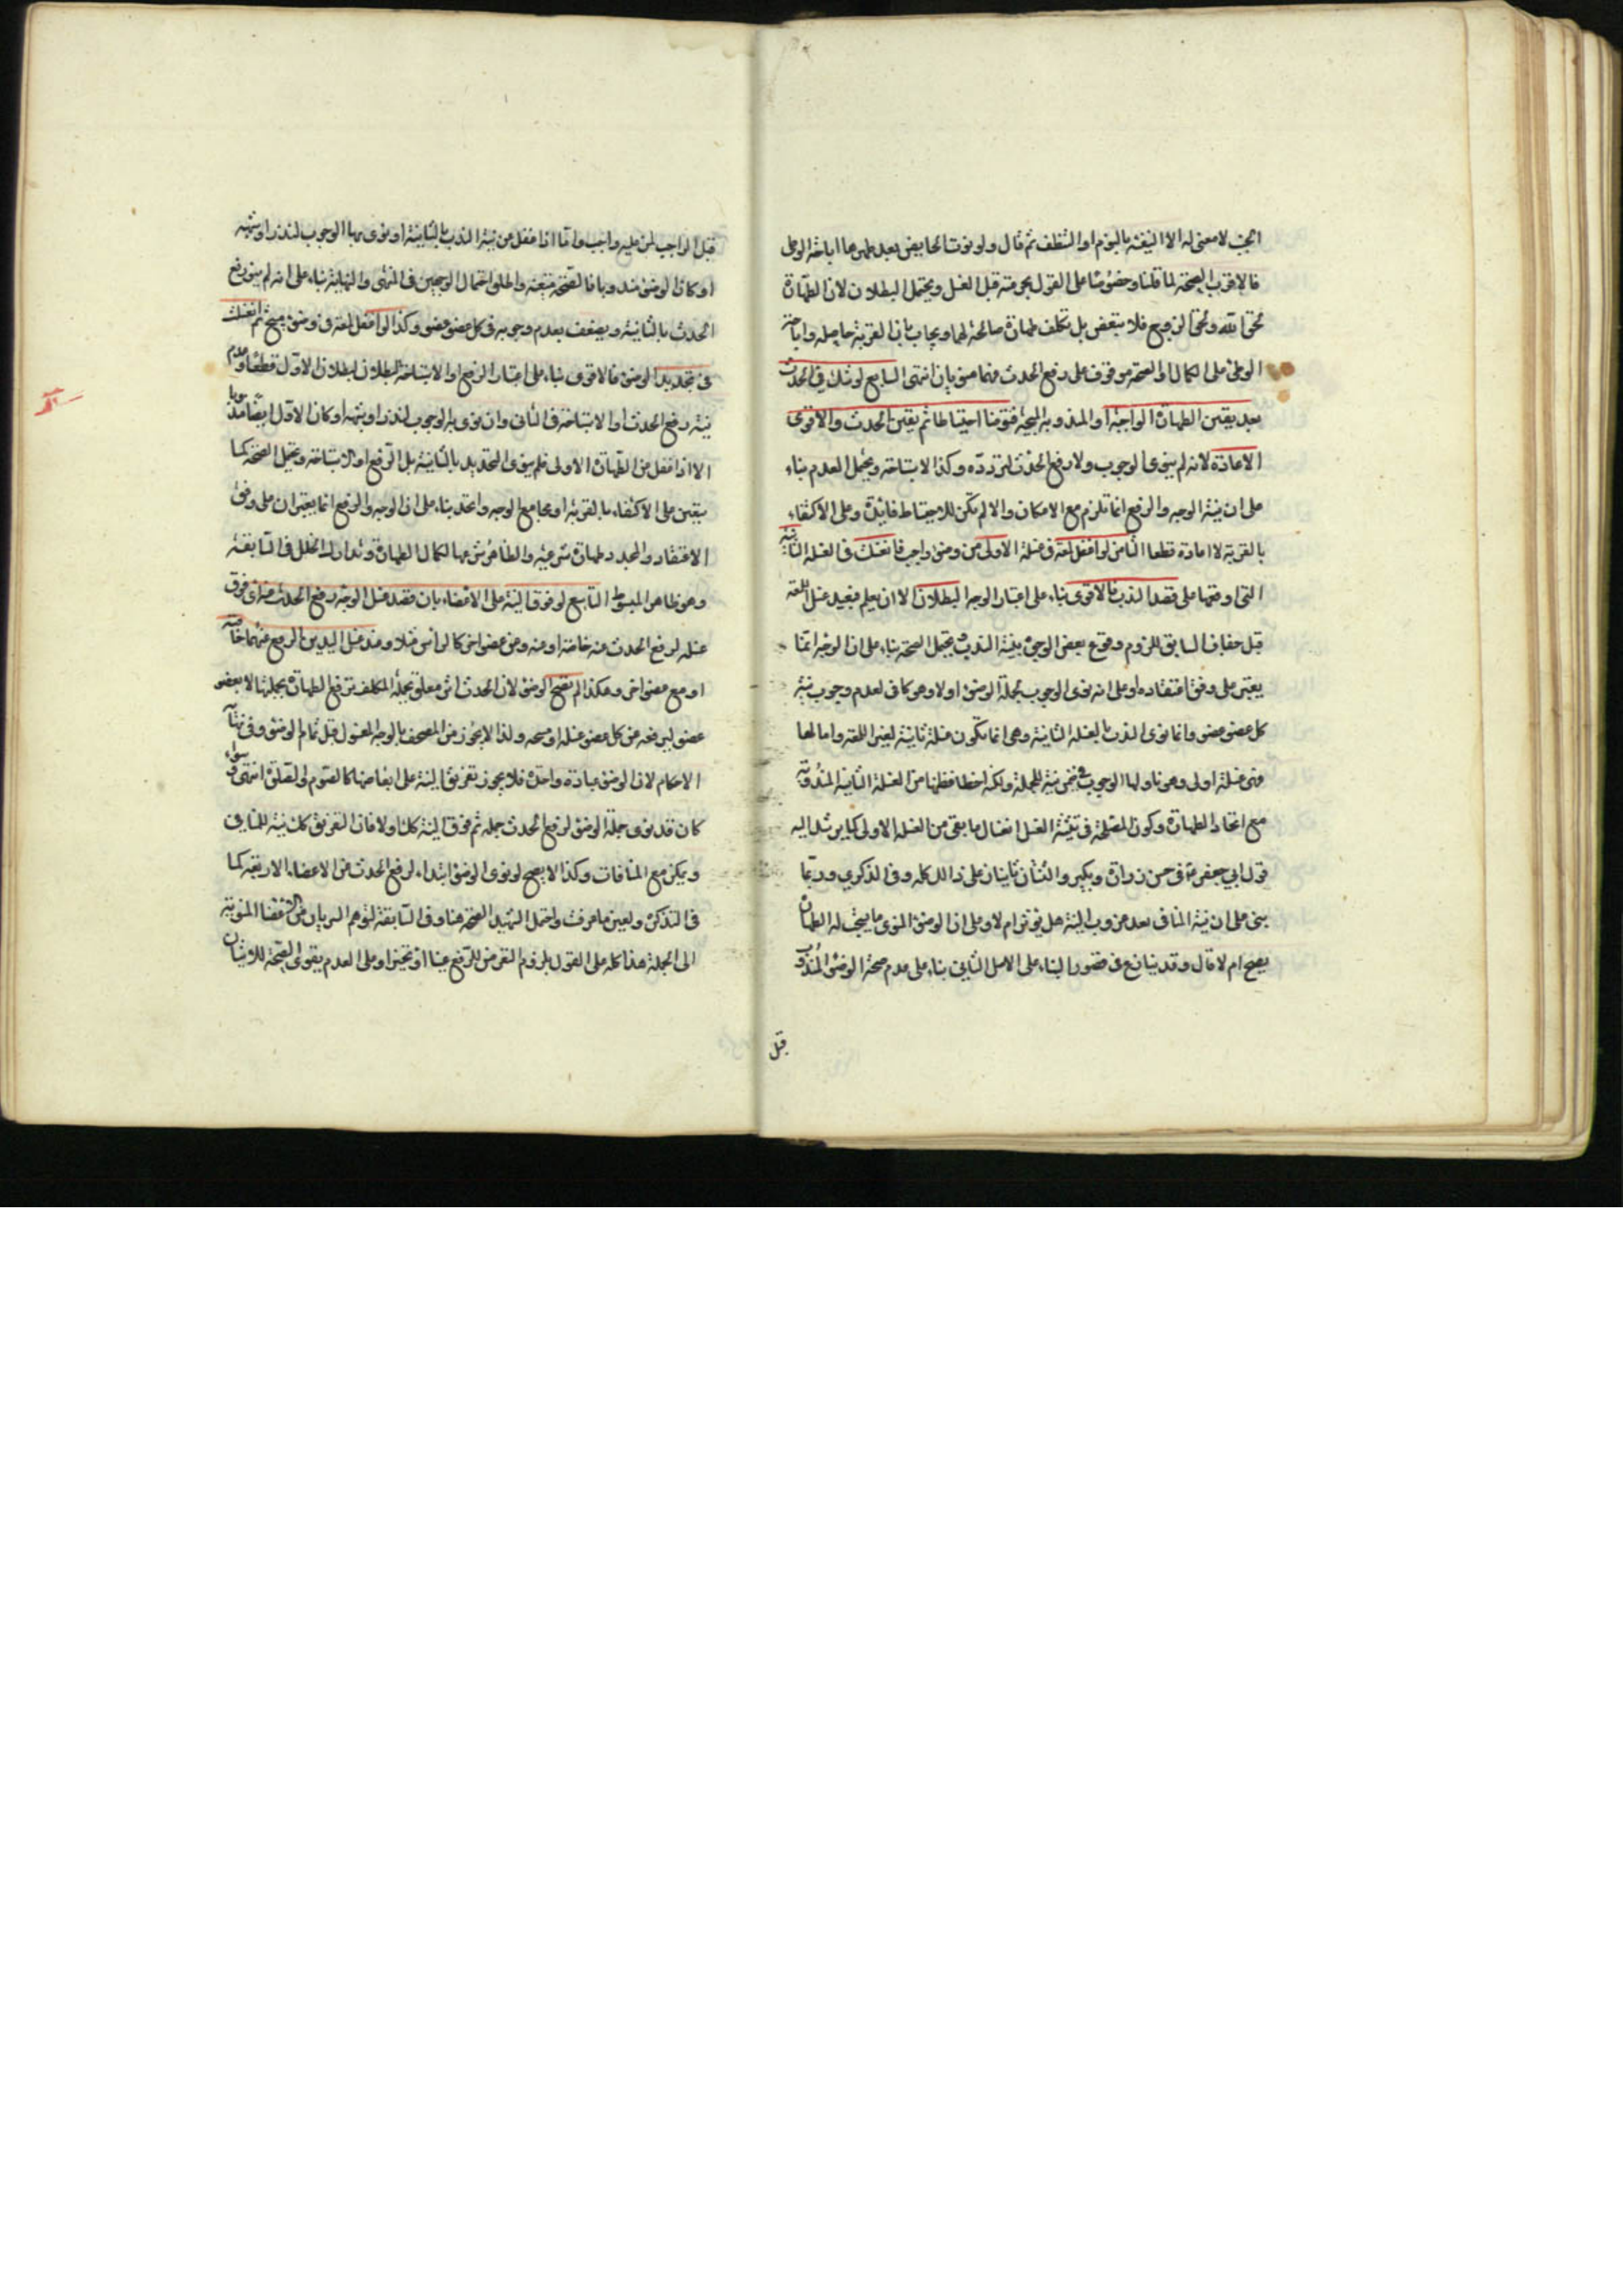 الجنب لا معنى له الا النيّة بالنوم او التنظف ثم قال ولو نوت الحايض بعد طهرها اباحة الوطى
فالاقرب الصحة لما قلنا وخصوصا على القول بحرمته قبل الغسل ويحتمل البطلان لان الطهارة
لحق الله ولحق الزوج فلا يتبعض بل تكلف طهارة صالحة لهما ويجاب بان القربة حاصله واباحة
الوطئ على الكمال او الصحة موقوف على رفع الحدث فيهما انتهى السابع لو شك في الحدث
بعد يقين الطهارة الواجبة او المندوبة المبيحة فتوضأ احتياطا ثم يقين الحدث والاقوى
الاعادة لانه لم ينو الوجوب ولا رفع الحدث لتردده وكذا الاستباحة ويحتمل العدم بناء
على ان نية الوجه والرفع انما تلزم مع الامكان والا لم تكن للاحتياط فائدة وعلى الاكتفاء
بالقربة لا اعادة قطعا الثامن لو اغفل لمعة فى غسلة الاولى من وضوء واجب فانغسلت فى الغسلة الثانية
التى اوقعها على قصد الندب فالاقوى بناء على اعتبار الوجه البطلان الا ان يعلم فيعيد غسل اللمعة
قبل جفاف السابق للزوم وقوع بعض الوجوب بنية الندب ويحتمل الصحة بناء على ان الوجه انما
يعتبر على وفق اعتقاده او على انه نوى الوجوب بجملة الوضوء اولا وهو كاف لعدم وجوب نية
كل عضو عضو وانما نوى الندب بالغسلة الثانية وهى انما تكون غسلة ثانية لغير اللمعة واما لها
فهى غسلة اولى وهو ناو لها الوجوب فى ضمن نية للجملة ولكنه اخطا فظنها من الغسلة الثانية المندوبة
مع اتحاد الطهارة وكون المصلحة فى تثنية الغسل انغسال ما بقى من الغسلة الاولى كما يرشد اليه
قول ابي جعفر ع فى حسن زرارة وبكير والثنتان تأتيان على ذالك كله وفى الذكري وربما
بنى على ان نية المنافى بعد عزوب النية هل يؤثر ام لا وعلى ان الوضوء المنوى ما يستحب له الطهارة
يصح ام لا قال وقد ينازع فى تصور البناء على الاصل الثاني بناء على عدم صحة الوضوء المندوب
قبل
قبل الواجب لمن عليه واجب واما اذا غفل عن نية الندب بالثانية او نوى بها الوجوب لنذر او شبهه
او كان الوضوء مندوبا فالصحة متجه واطلق احتمال الوجهين فى المنتهى والنهاية بناء على انه لم ينو رفع
الحدث بالثانية ويضعف بعدم وجوبه فى كل عضو عضو وكذا لو اغفل لمعة فى وضوء صحيح ثم انغسلت
فى تجديد الوضوء فالاقوى بناء على اعتبار الرفع او الاستباحة البطلان لبطلان الاول قطعا وعدم
نية رفع الحدث او الاستباحة فى الثانى وان نوى به الوجوب لنذر او شبهه او كان الاول ايضا مندوبا
الا اذا غفل عن الطهارة الاولى فلم ينو التجديد بالثانية بل الرفع او الاستباحة ويحتمل الصحة كما
يتعين على الاكتفاء بالقربة او بجامع الوجه واتحد بناء على ان الوجه والرفع انما يعتبران على وفق
الاعتقاد والمجدد طهارة شرعيه والظاهر شرعها لكمال الطهارة وتدارك الخلل فى السابقة
وهو ظاهر المبسوط التاسع لو فرق النية على الاعضاء بان قصد غسل الوجه رفع الحدث عنه اى فرق
غسله لرفع الحدث عنه خاصة او عنه وعن عضو اخر كالراس مثلا وعند غسل اليدين الرفع عنهما خاصة
او مع عضو اخر وهكذا لم تصح الوضوء لان الحدث اثر معلق بجملة المكلف ترفع الطهارة بجملتها لا بعضو
عضو ليرفعه عن كل عضو غسله او مسحه ولذا لا يجوز مس المصحف بالوجه المغسول قبل تمام الوضوء وفى نهاية
الاحكام لان الوضوء عبادة واحدة فلا يجوز تفريق النية على ابعاضها كالصوم والصلوة انتهى وسواء
كان قد نوى جملة الوضوء لرفع الحدث جمله ثم فرق النية كذلك او لا فان التفريق كذلك نية للمنافى
ويمكن مع المنافات وكذا لا يصح لو نوى الوضوء ابتداء لرفع الحدث عن الاعضاء الاربعة كما
فى التذكرة ولعين ما عرفت واحتمل الشهيد الصحة هنا وفى السابقة لتوهم السريان من الاعضاء المنوية
الى الجملة هذا كله على القول بلزوم التعرض للرفع عينا او تخييرا وعلى العدم يقوى الصحة للاتيان